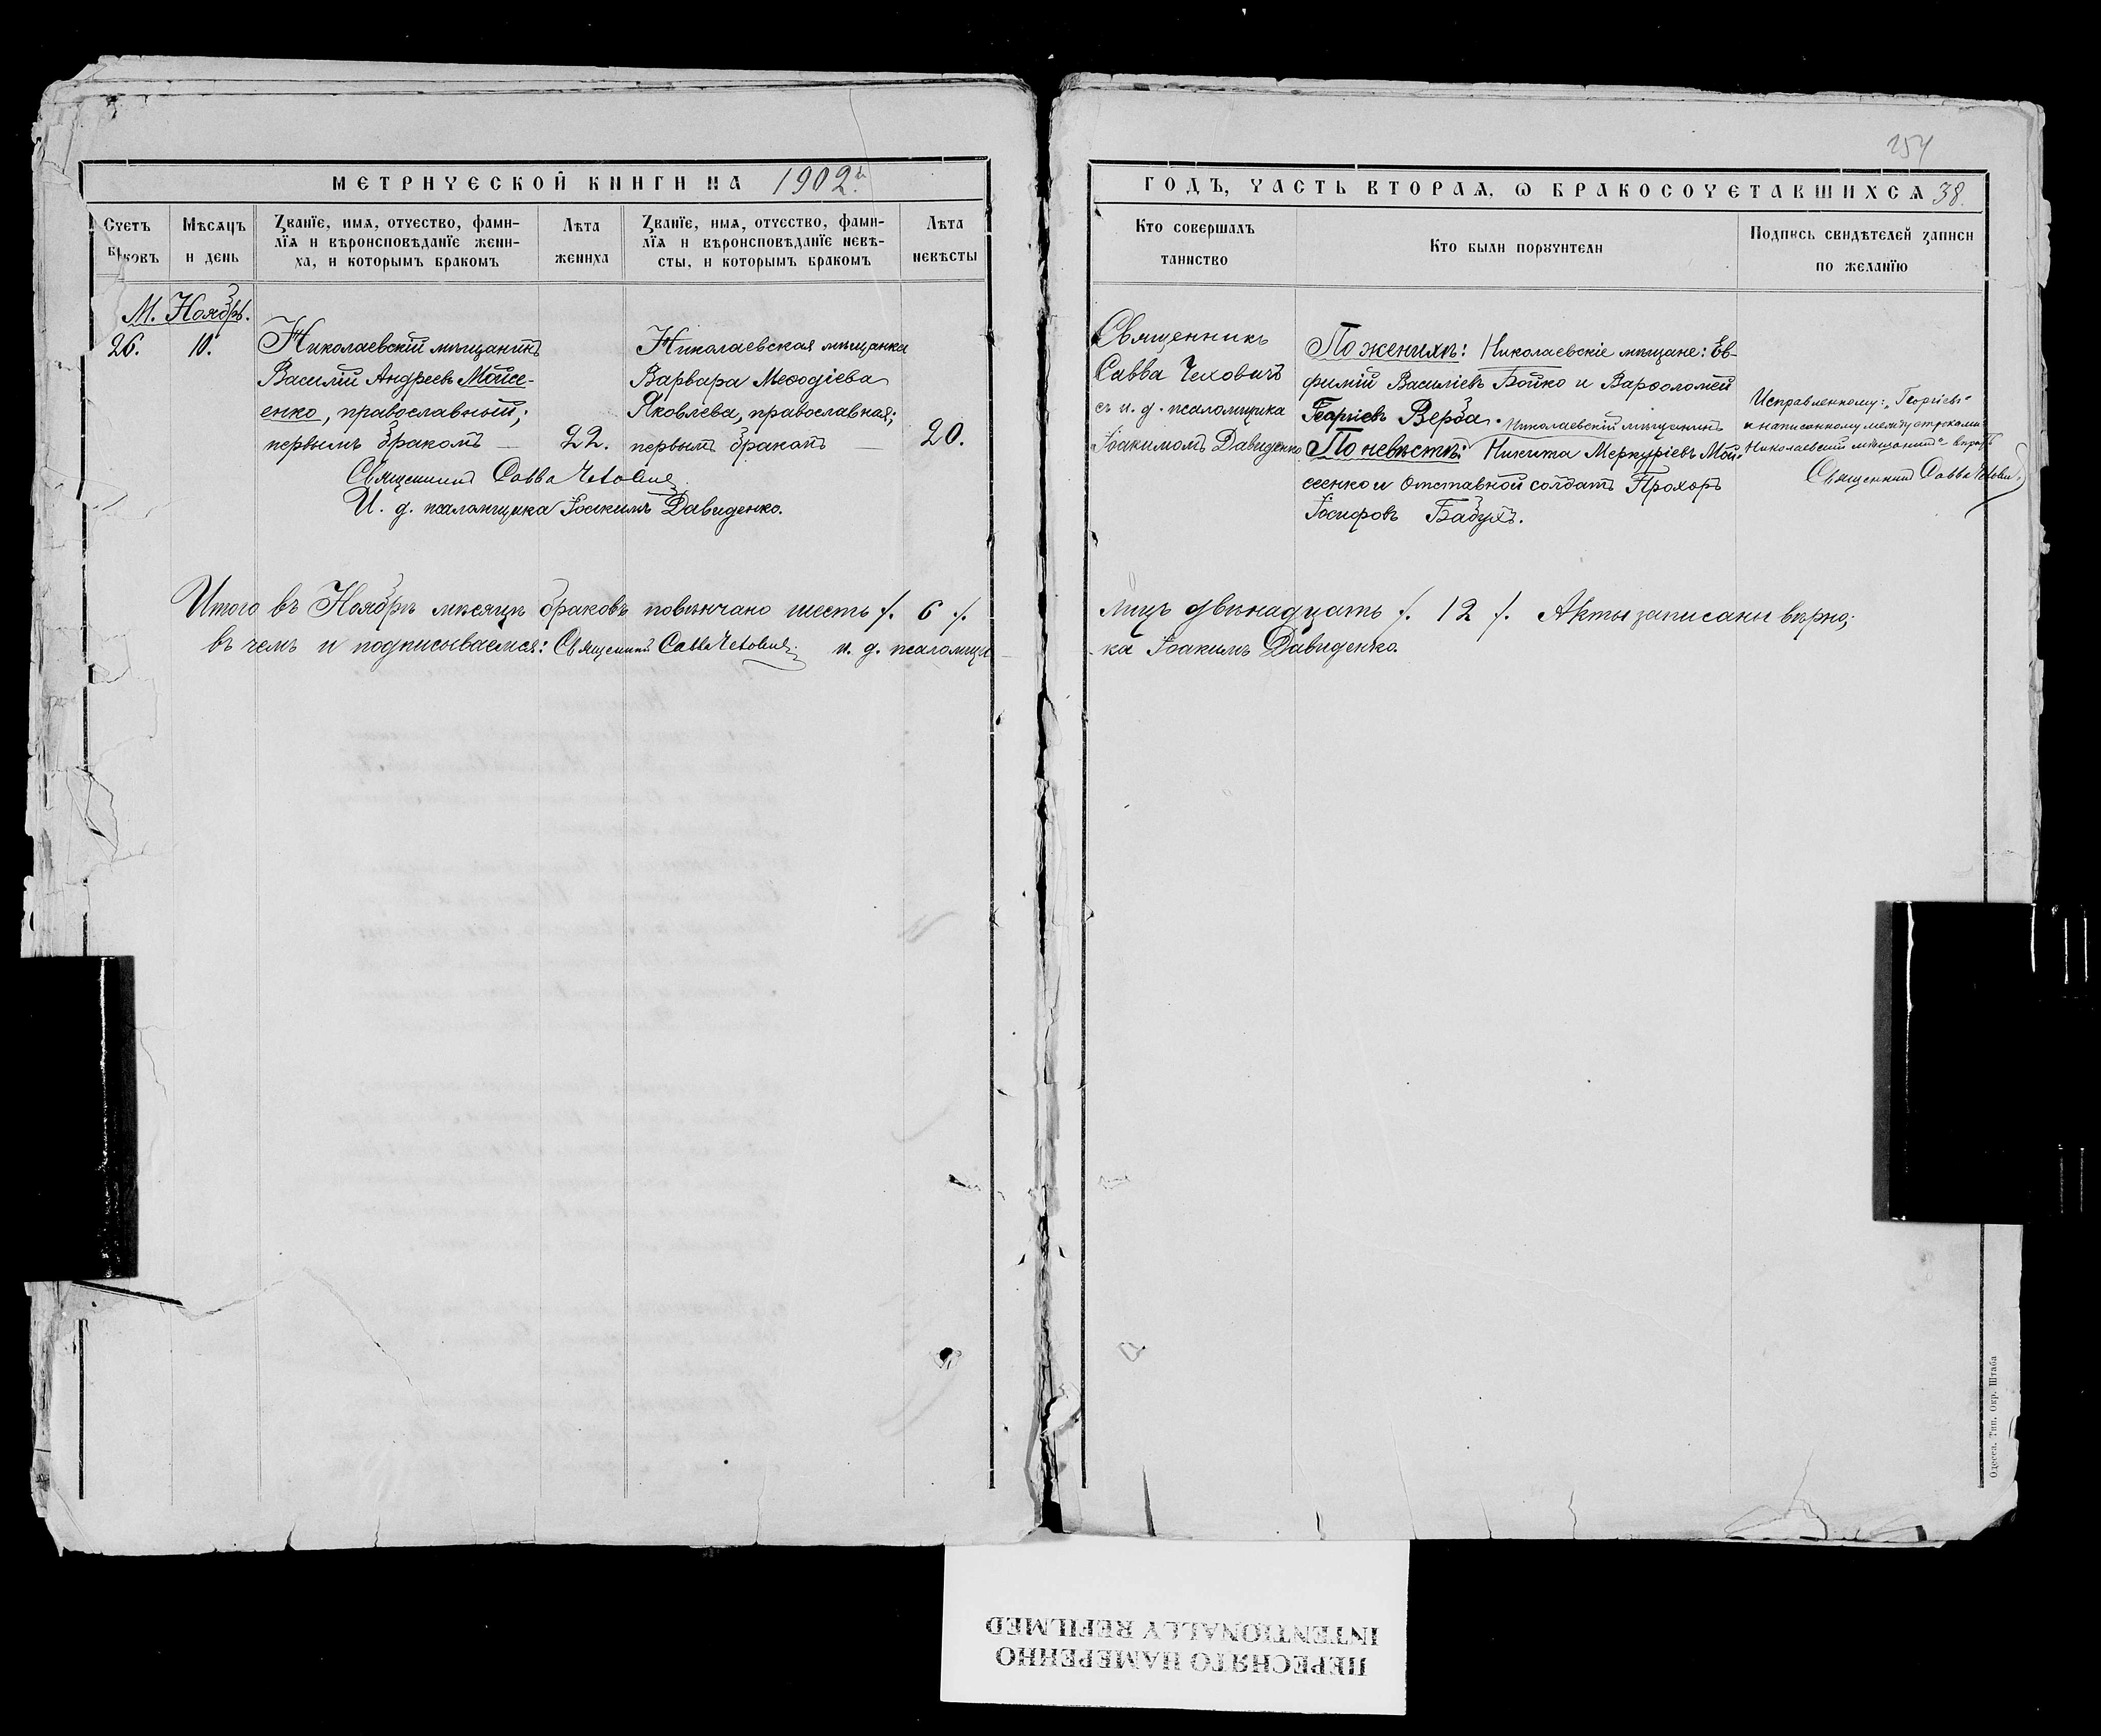 МЕТРИЧЕСКОЙ КНИГИ НА 1902й.
Счетъ браковъ
Мѣсяцъ и день
Званїе, имя, отчество, фамилїя и вѣроисповѣданїе жениха, и которымъ бракомъ
Лѣта жениха
Званїе, имя, отчество, фамилїя и вѣроисповѣданїе невѣсты, и которымъ бракомъ
Лѣта невѣсты
М. Ноябрь.
26. 10. Николаевскій мѣщанинъ
Василій Андреевъ Мойсе-
енко, православный;
первымъ бракомъ — 22.
Николаевская мѣщанка
Варвара Меѳодіева
Яковлева, православная;
первымъ бракомъ — 20.
Священникъ Савва Чеховичъ
И. д. псаломщика Іоакимъ Давиденко.
Итого въ Ноябрѣ мѣсяцѣ браковъ повѣнчано шесть /. 6 /.
въ чемъ и подписываемся: Священникъ Савва Чеховичъ. и. д. псаломщи
254
ГОДЪ, ЧАСТЬ ВТОРАЯ, Ѡ БРАКОСОЧЕТАВШИХСЯ 38.
Кто совершалъ таинство
Кто были поручители
Подпись свидѣтелей записи по желанїю
Священникъ
Савва Чеховичъ
съ и. д. псаломщика
Іоакимомъ Давиденко
По женихѣ: Николаевскіе мѣщане: Ев-
фимій Василіевъ Бойко и Варѳоломей
Георгіевъ Верба. Николаевскій мѣщанинъ
По невѣстѣ: Никита Меркуріевъ Мой-
сеенко и отставной солдатъ Прохоръ
Іосифовъ Бабухъ.
Исправленному: „Георгіевъ"
и написанному между строками
„Николаевскій мѣщанинъ" - вѣрить
Священникъ Савва Чеховичъ
лицъ двѣнадцать /. 12 /. Акты записаны вѣрно;
ка Іоакимъ Давиденко.
Одесса. Тип. Окр. Штаба
ПЕРЕСНЯТО НАМЕРЕННО
INTENTIONALLY REFILMED